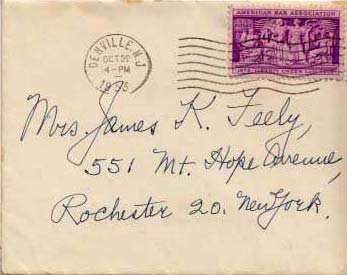 DENVILLE, N.J.
OCT 22
4-PM
1953
AMERICAN BAR ASSOCIATION
Mrs. James K. Feely,
551 Mt. Hope Avenue,
Rochester 20. New York.